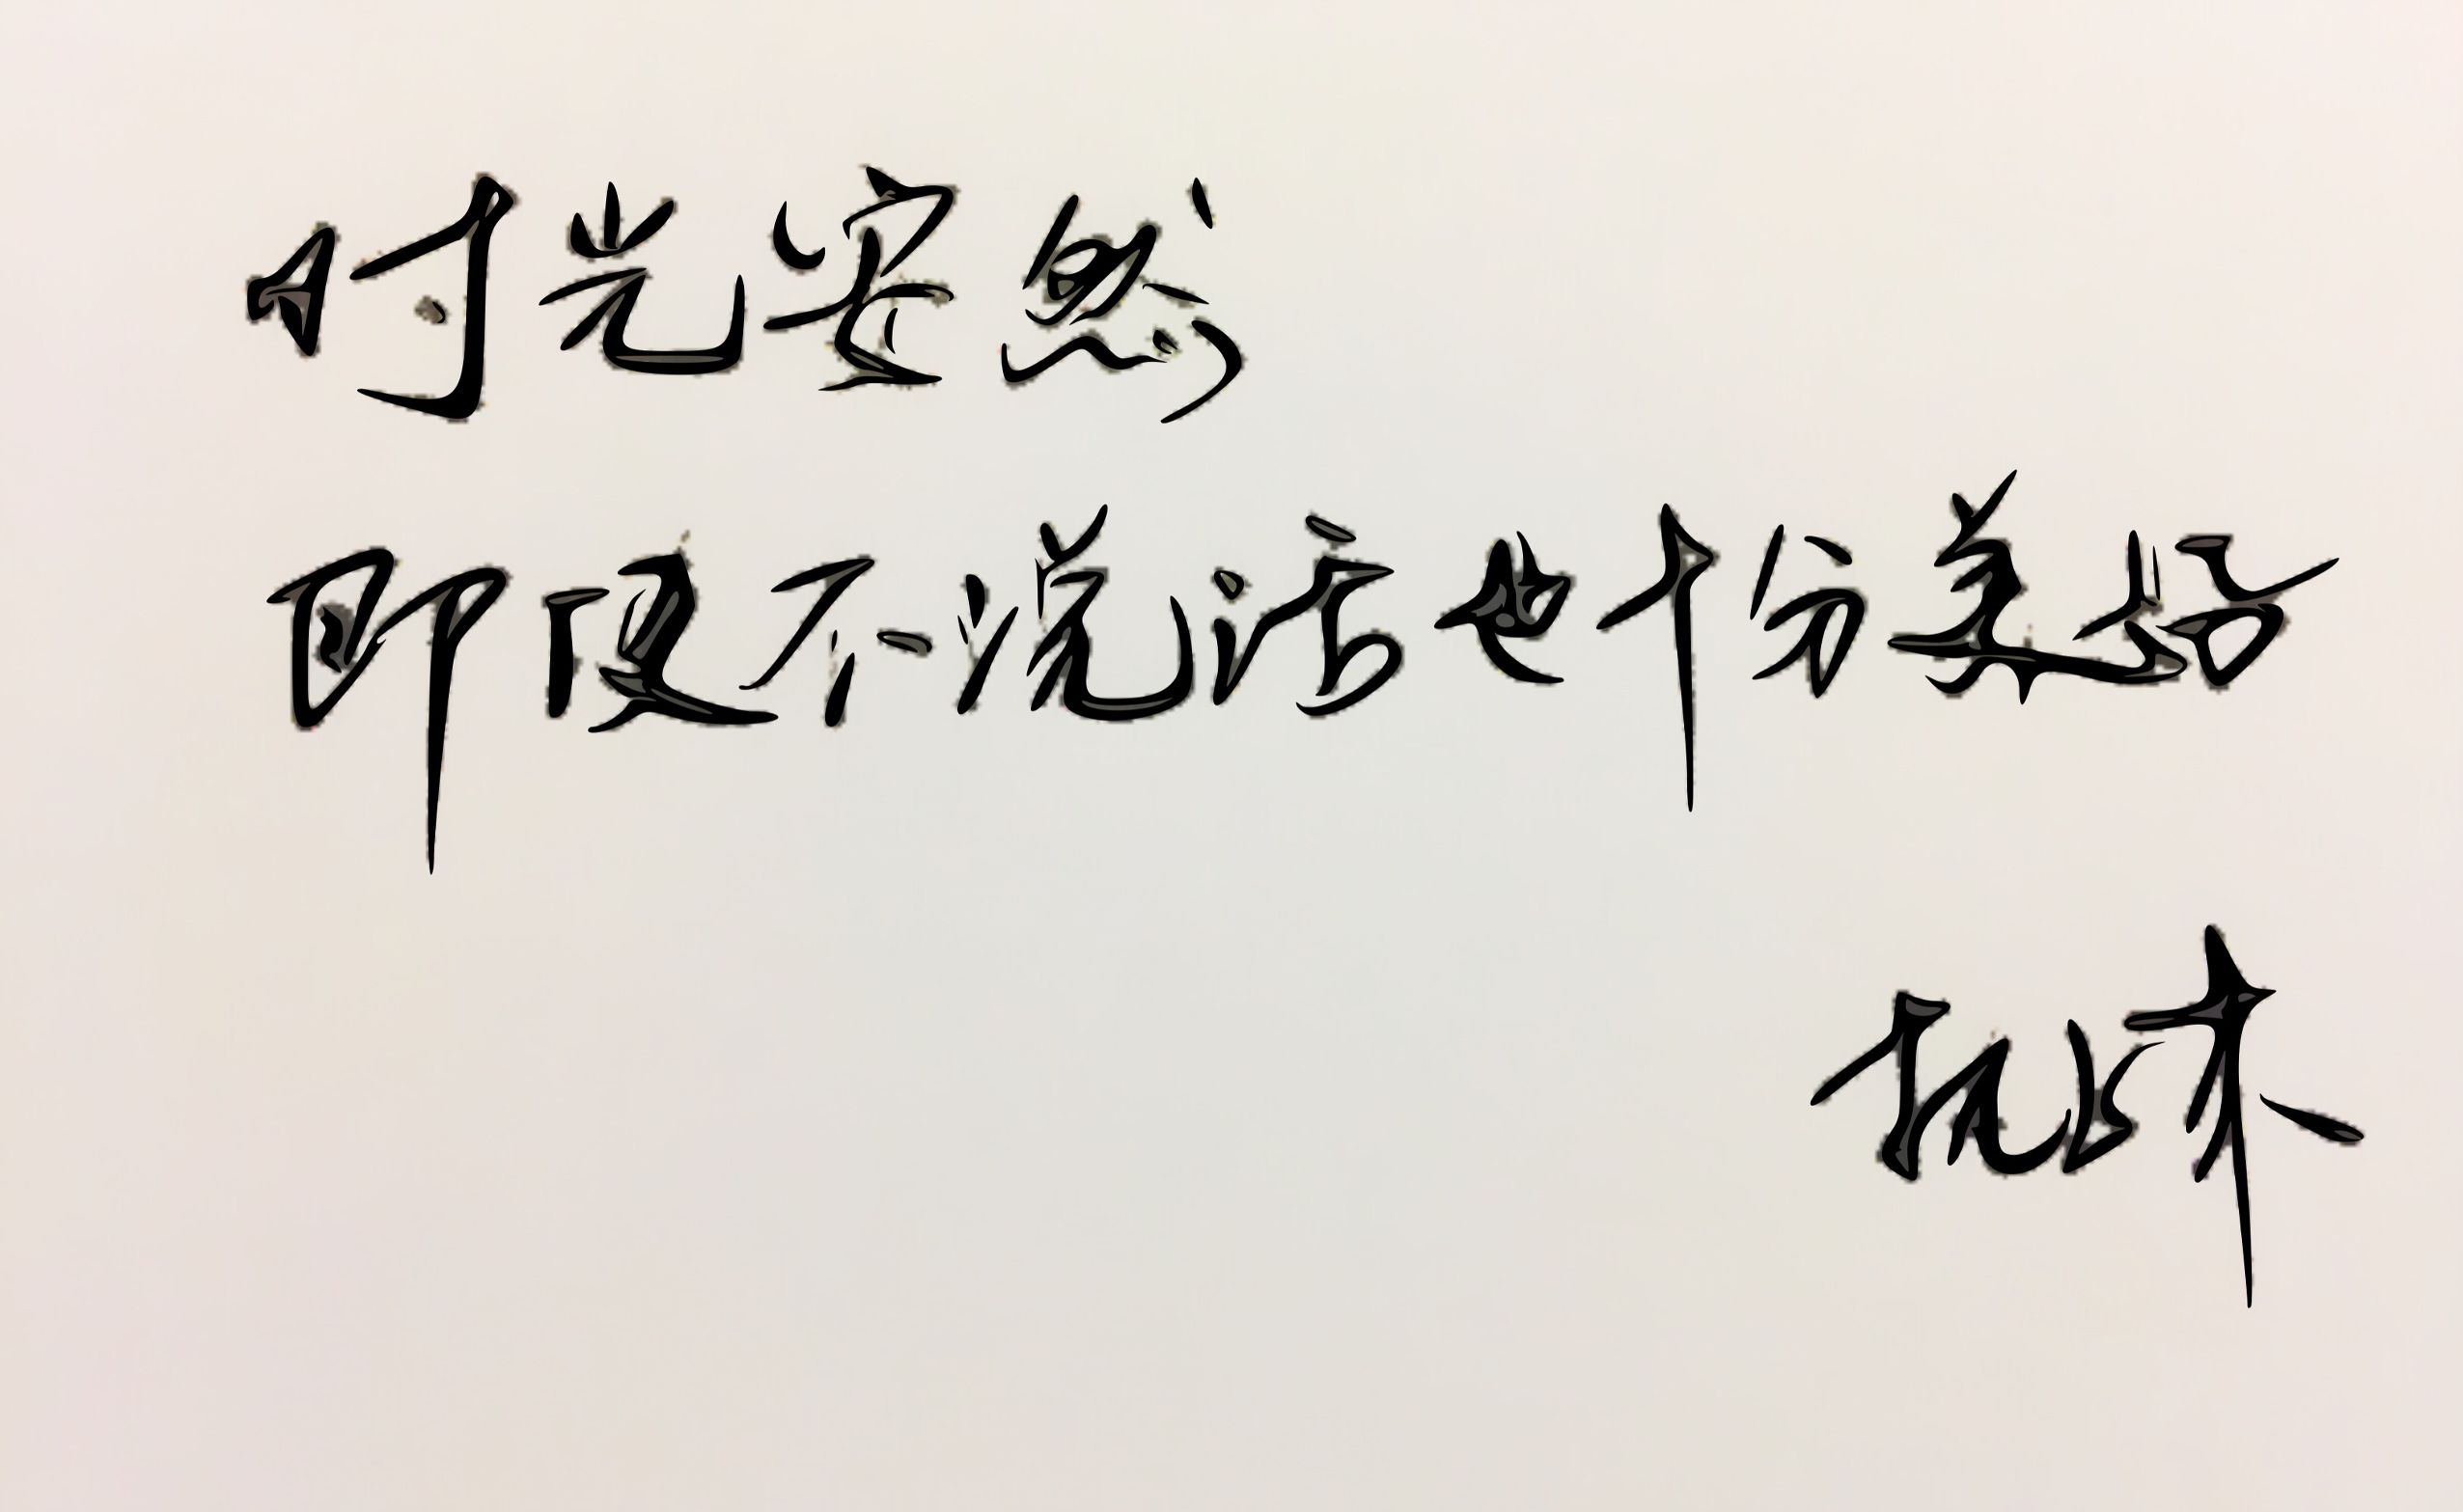 时光安然
即使不说话也十分美好